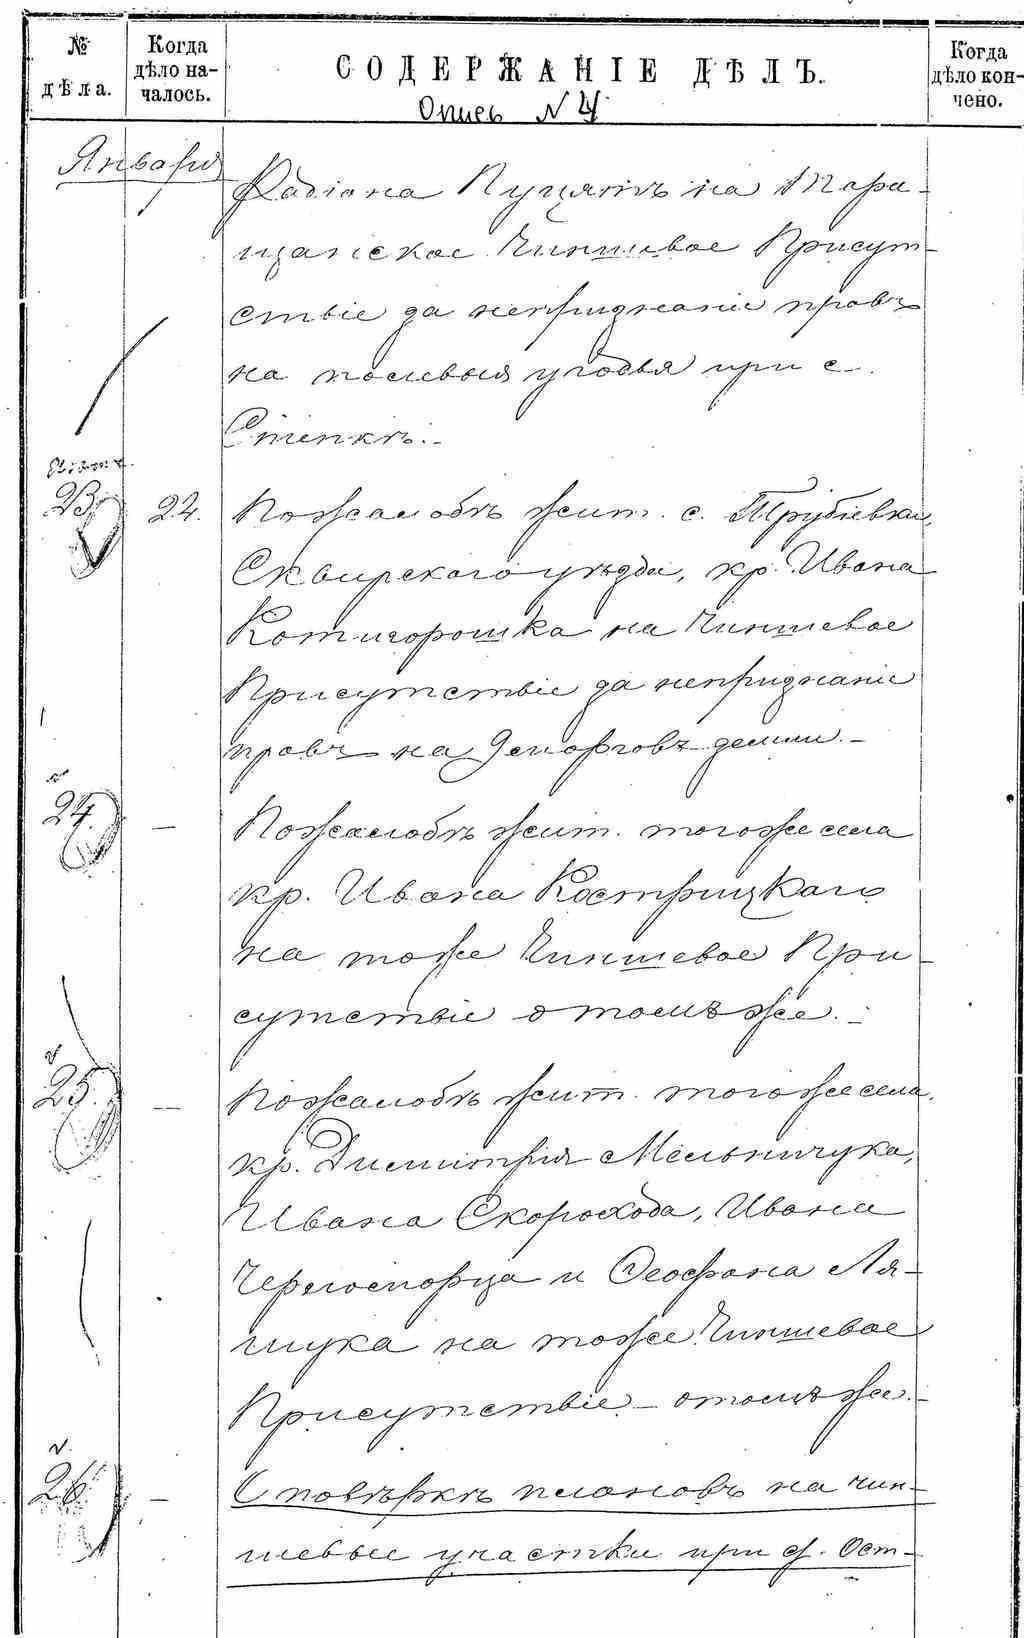 № дѣла. Когда дѣло началось. СОДЕРЖАНІЕ ДѢЛЪ. Когда дѣло кончено.
Опись N 4
Января
Фабіана Пуцята на Тара-
щанское Чиншевое Присут-
ствіе за непризнаніе правъ
на полевыя угодья при с.
Степкѣ.-
23 22. По жалобѣ жит. с. Трубіевки,
Сквирскаго уѣзда, кр. Ивана
Котигорошка на Чиншевое
Присутствіе за непризнаніе
правъ на земли.-
24. — По жалобѣ жит. того же села
кр. Ивана Кострицкаго
на тоже Чиншевое При-
сутствіе о томъ же.-
25. — По жалобѣ жит. того же села,
кр. Димитрія Мельничука,
Ивана Скорохода, Ивана
и Феофана Ля-
шука на тоже Чиншевое
Присутствіе - о томъ же.-
26 — О повѣркѣ плановъ на чин-
шевые участки при д. Ост-